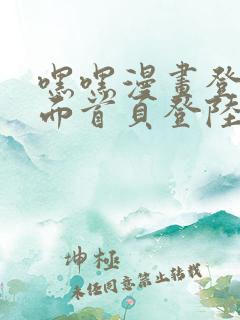 嘿嘿漫畫登
而首頁登陸
坤極
未經同意禁止转载